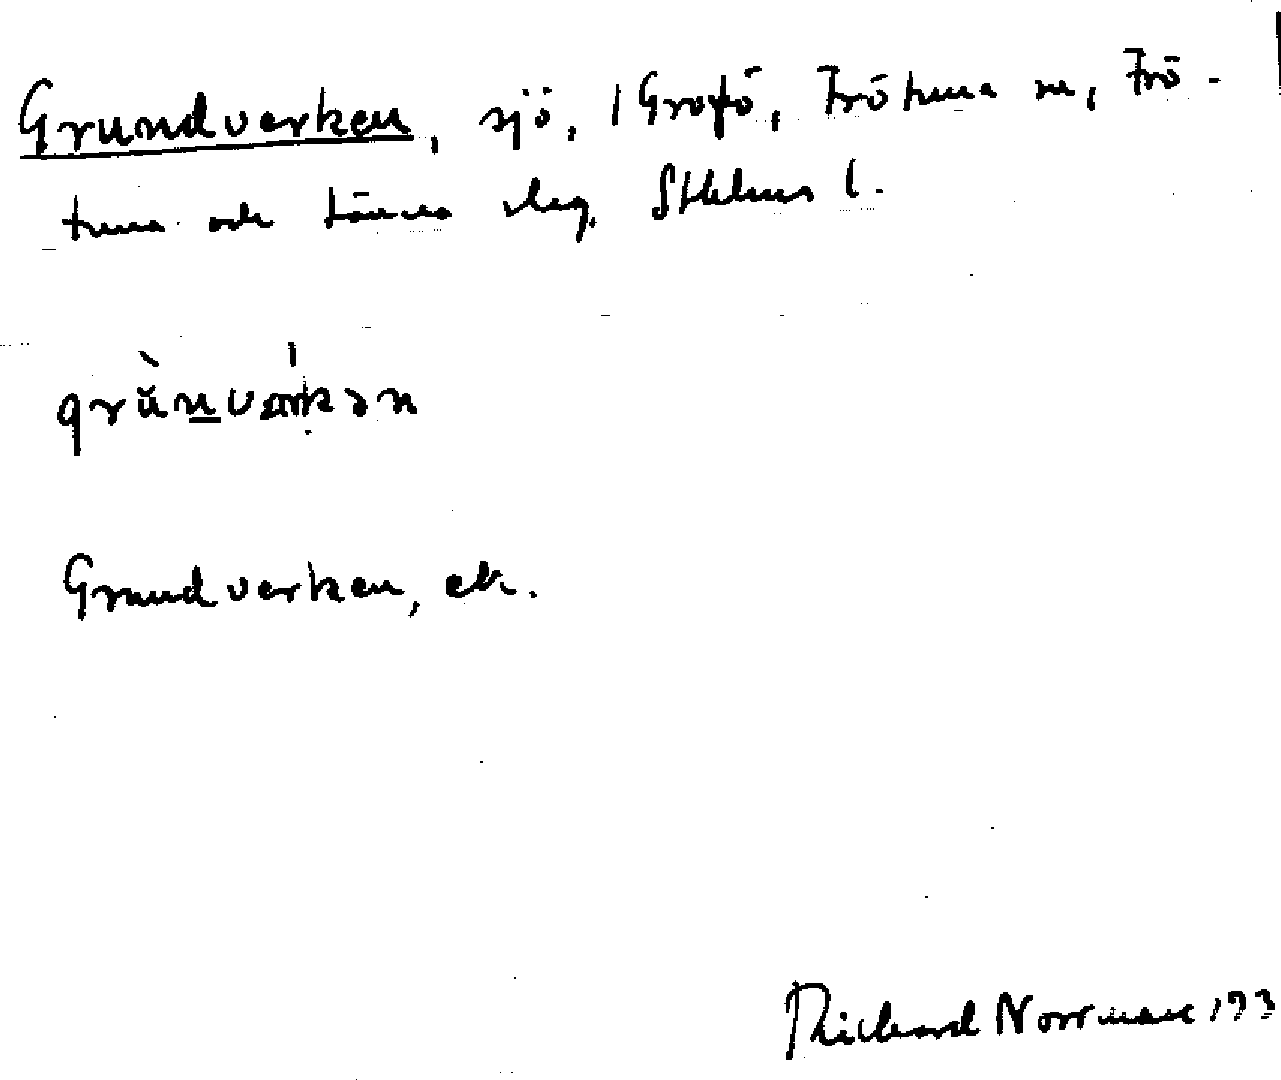 Grundverken, sjö, i Grofö, Frötuna sn, Frö-
tuna och Länna slag, Sthlms l.
grùn̲vær̀kən
Grundverken, ek.
Richard Norrman 193